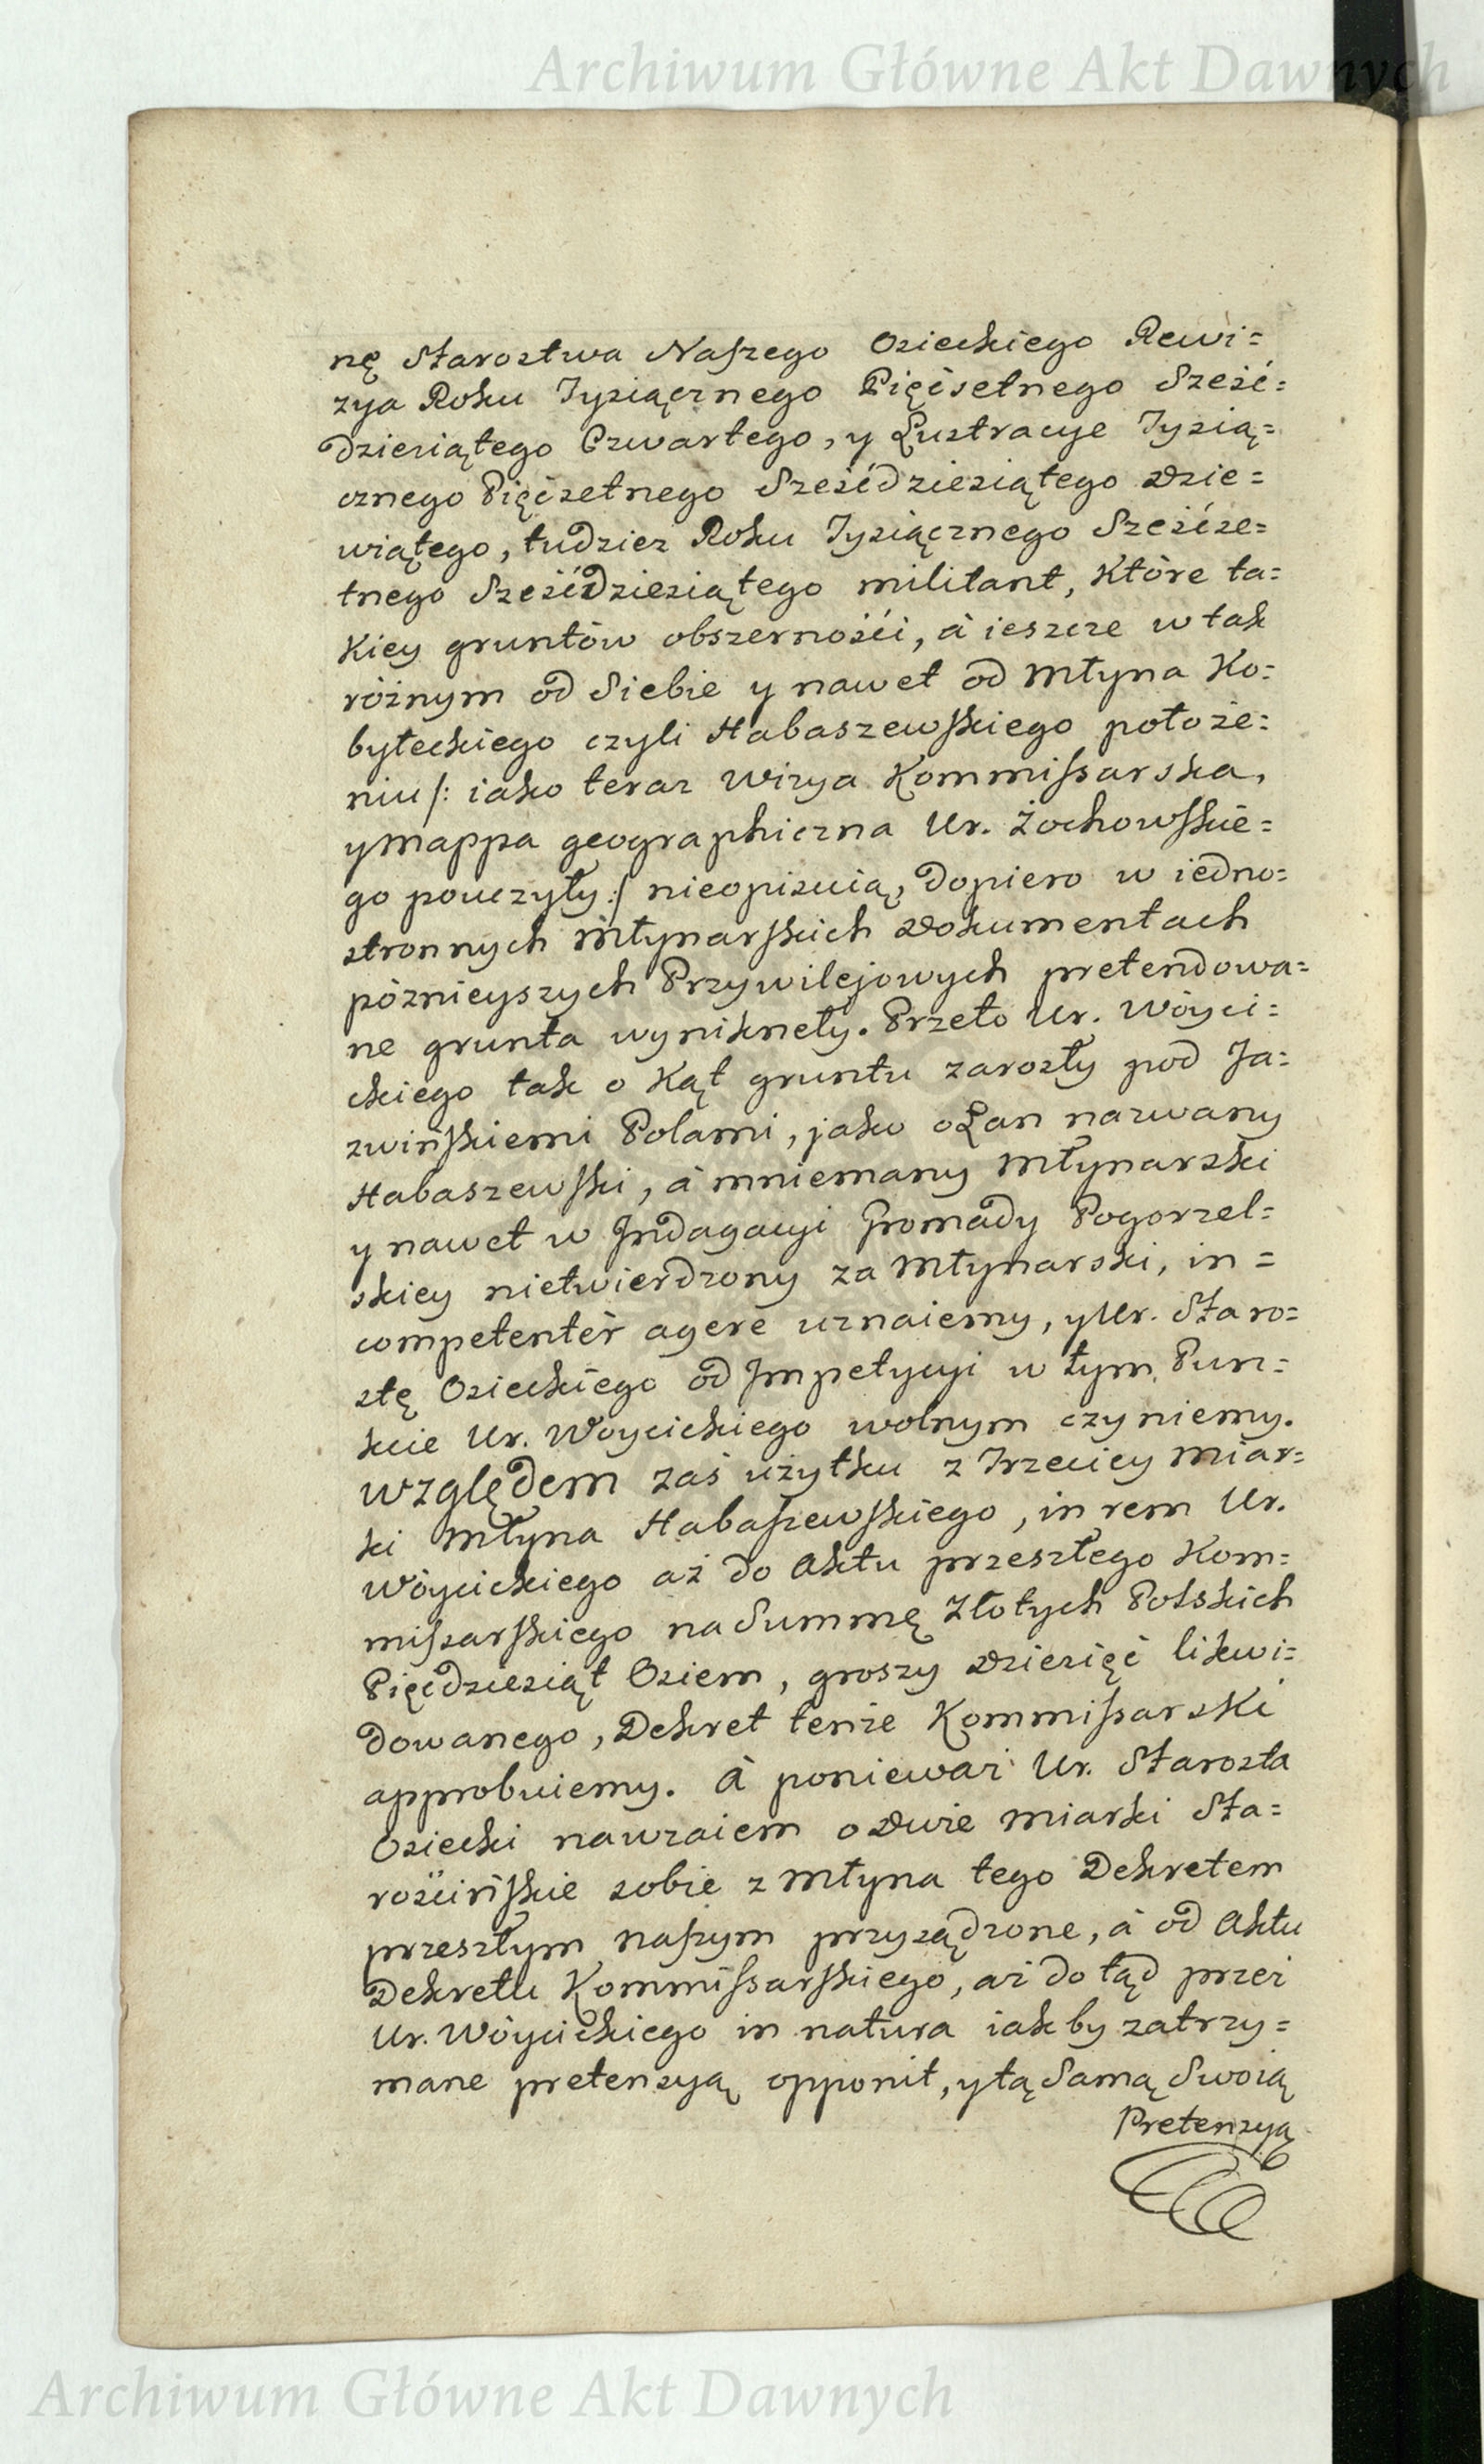 Archiwum Główne Akt Dawnych
nę Starostwa Naszego Osieckiego Rewi=
zya Roku Tysiącznego Pięćsetnego Sześć=
dziesiątego Czwartego, y Lustracye Tysią=
cznego Pięćsetnego Sześćdziesiątego Dzie=
wiątego, tudziez Roku Tysiącznego Sześćse=
tnego Sześćdziesiątego militant, Które ta=
Kiey gruntów obszerności, à ieszcze w tak
różnym od Siebie y nawet od Młyna Ko=
byłeckiego czyli Habaszewskiego położe=
niu /: iako teraz Wizya Kommissarska,
y Mappa geographiczna Ur. Żochowskie=
go pouczyły :/ nieopisuią, dopiero w iedno=
stronnych Młynarskich Dokumentach
póznieyszych Przywilejowych pretendowa=
ne grunta wyniknęły. Przeto Ur. Wóyci=
ckiego tak o Kąt gruntu zarosły pod Ja=
zwińskiemi Polami, jako o Łan nazwany
Habaszewski, à mniemany Młynarski
y nawet w Indagacyi Gromady Pogorzel=
skiey nietwierdzony za Młynarski, in=
competentèr agere uznaiemy, y Ur. Staro=
stę Osieckiego od Impetycyi w tym Pun=
kcie Ur. Woycickiego wolnym czyniemy.
Względem zaś użytku z Trzeciey Miar=
ki Młyna Habaszewskiego, in rem Ur.
Wóycickiego aż do Aktu przeszłego Kom=
missarskiego na Summę Złotych Polskich
Pięćdziesiąt Osiem, groszy Dziesięć likwi=
dowanego, Dekret tenże Kommissarski
approbuiemy. à ponieważ Ur. Starosta
Osiecki nawzaiem o Dwie Miarki Sta=
rościńskie sobie z Młyna tego Dekretem
przeszłym naszym przysądzone, à od Aktu
Dekretu Kommissarskiego, aż do tąd przez
Ur. Wóycickiego in natura iakby zatrzy=
mane pretensyą opponit, y tą Samą Swoią
Pretensyą
Archiwum Główne Akt Dawnych